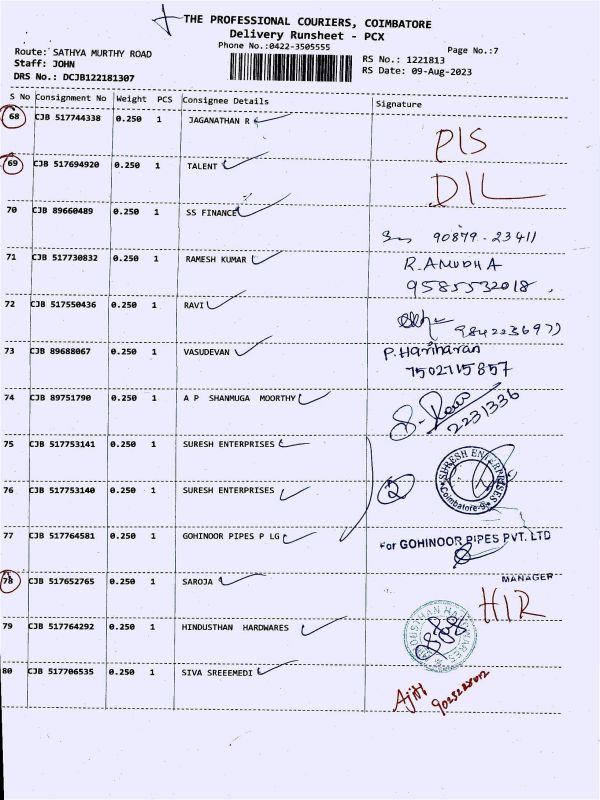 THE PROFESSIONAL COURIERS, COIMBATORE
Delivery Runsheet - PCX
Phone No.:0422-3505555
Page No.:7
Route: SATHYA MURTHY ROAD
RS No.: 1221813
Staff: JOHN
RS Date: 09-Aug-2023
DRS No.: DCJB122181307
S No Consignment No Weight PCS Consignee Details Signature
68 CJB 517744338 0.250 1 JAGANATHAN R PIS
69 CJB 517694920 0.250 1 TALENT DIL
70 CJB 89660489 0.250 1 SS FINANCE 90879-23411
71 CJB 517730832 0.250 1 RAMESH KUMAR R.AMUDHA
9585532018.
72 CJB 517550436 0.250 1 RAVI 9842236977
73 CJB 89688067 0.250 1 VASUDEVAN P.Hariharan
7502715857
74 CJB 89751790 0.250 1 A P SHANMUGA MOORTHY 2231336
75 CJB 517753141 0.250 1 SURESH ENTERPRISES SURESH ENTERPRISES
76 CJB 517753140 0.250 1 SURESH ENTERPRISES 2 Coimbatore
77 CJB 517764581 0.250 1 GOHINOOR PIPES P LG For GOHINOOR PIPES PVT. LTD
78 CJB 517652765 0.250 1 SAROJA MANAGER
HIR
79 CJB 517764292 0.250 1 HINDUSTHAN HARDWARES HINDUSTHAN HARDWARES
80 CJB 517706535 0.250 1 SIVA SREEEMEDI Ajith